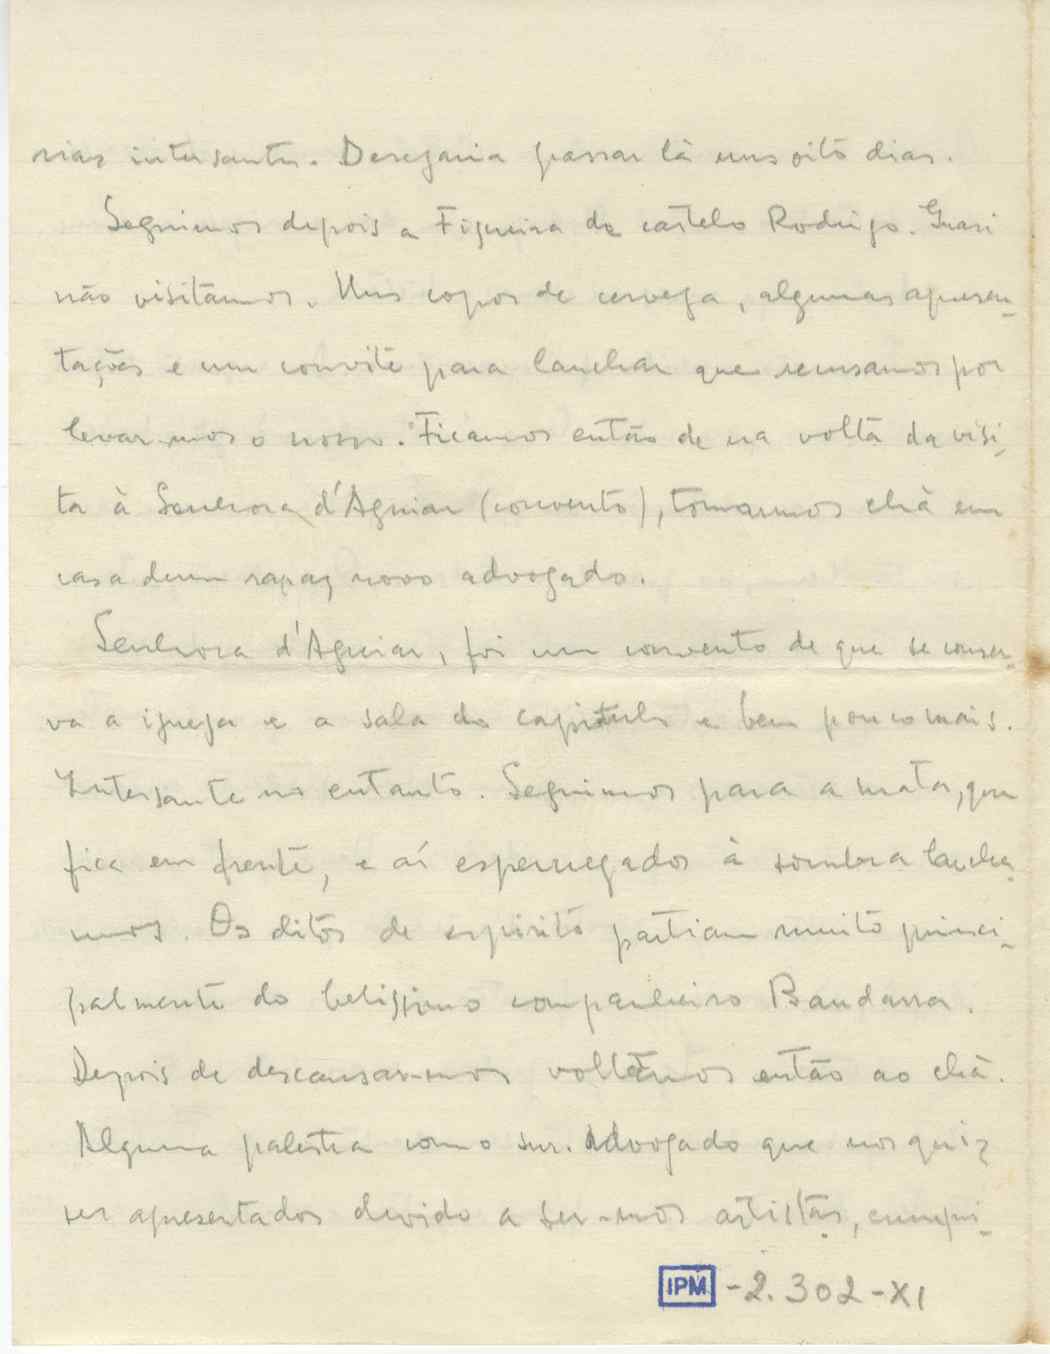 rias intersantes. Desejaria passar lá uns oitô dias.
Seguimos depois a Figueira de castelo Rodrigo. Quasi
não visitámos. Uns copos de cerveja, algumas apresen-
tações e um convite para lanchar que recusamos por
levar-mos o nosso. Ficamos então de na volta da visi-
ta à Senhora d'Aguiar (convento), tomarmos chá em
casa dum rapaz novo advogado.
Senhora d'Aguiar, foi um convento de que se conser-
va a igreja e a sala do capitulo e bem pouco mais.
Intersante no entanto. Seguimos para a mata, que
fica em frente, e aí espernegados à sombra lancha-
mos. Os ditos de espirito partiam muito princi-
palmente do belissimo companheiro Bandarra.
Depois de descansar-mos voltámos então ao chá.
Alguma palestra com o snr. Advogado que nos quiz
ser apresentados devido a ser-mos artistas, cumpri-
IPM -2.302-XI